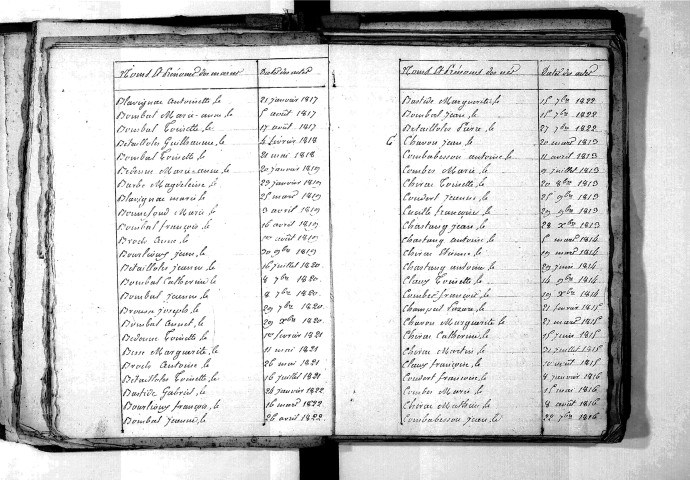 Noms et Prénoms des
Dates des actes
Blavignac Antoinette, le 21 janvier 1817
Bombal Marie-anne, le 5 août 1817
Bombal Toinette, le 17 août 1817
Betailloles Guillaume, le 4 février 1818
Bombal Toinette, le 21 mai 1818
Bedenne Marie-anne, le 20 janvier 1819
Barbe Magdeleine, le 29 janvier 1819
Blavignac marie, le 25 mars 1819
Bonnefond Marie, le 3 avril 1819
Bombal françois, le 16 avril 1819
Broch Anne, le 1er août 1819
Bourlioux Jean, le 30 9bre 1819
Betailloles Jeanne, le 16 juillet 1820
Bombal Catherine, le 8 7bre 1820
Bombal Jeanne, le 8 7bre 1820
Broussa Joseph, le 29 7bre 1820
Bombal Annet, le 29 Xbre 1820
Bedenne Toinette, le 1er février 1821
Bros Marguerite, le 11 mai 1821
Broch Antoine, le 26 mai 1821
Betailloles Toinette, le 16 juillet 1821
Bastide Gabriel, le 24 janvier 1822
Bourlioux françois, le 16 mars 1822
Bombal Jeanne, le 26 avril 1822
Noms et Prénoms des nés
Dates des actes
Bastide Marguerite, le 15 7bre 1822
Bombal Jean, le 15 7bre 1822
Betailloles Pierre, le 27 7bre 1822
C Chavon Jean, le 20 mars 1813
Combabesson antoine, le 11 avril 1813
Combes Marie, le 9 juillet 1813
Chirac Toinette, le 20 8bre 1813
Condert Jeanne, le 25 9bre 1813
Cueille françoise, le 29 9bre 1813
Chastang Jean, le 28 Xbre 1813
Chastang antoine, le 5 mars 1814
Chirac Etienne, le 19 mars 1814
Chastang antoine, le 29 juin 1814
Claux Toinette, le 14 9bre 1814
Combes françois, le 19 Xbre 1814
Champeil Pierre, le 21 février 1815
Chavon Marguerite, le 27 mars 1815
Chirac Catherine, le 15 juin 1815
Chirac Martin, le 31 juillet 1815
Claux françois, le 10 août 1815
Condert francoise, le 4 janvier 1816
Combes Marie, le 15 mai 1816
Chirac Mathieu, le 8 août 1816
Combabesson Jean, le 22 7bre 1816